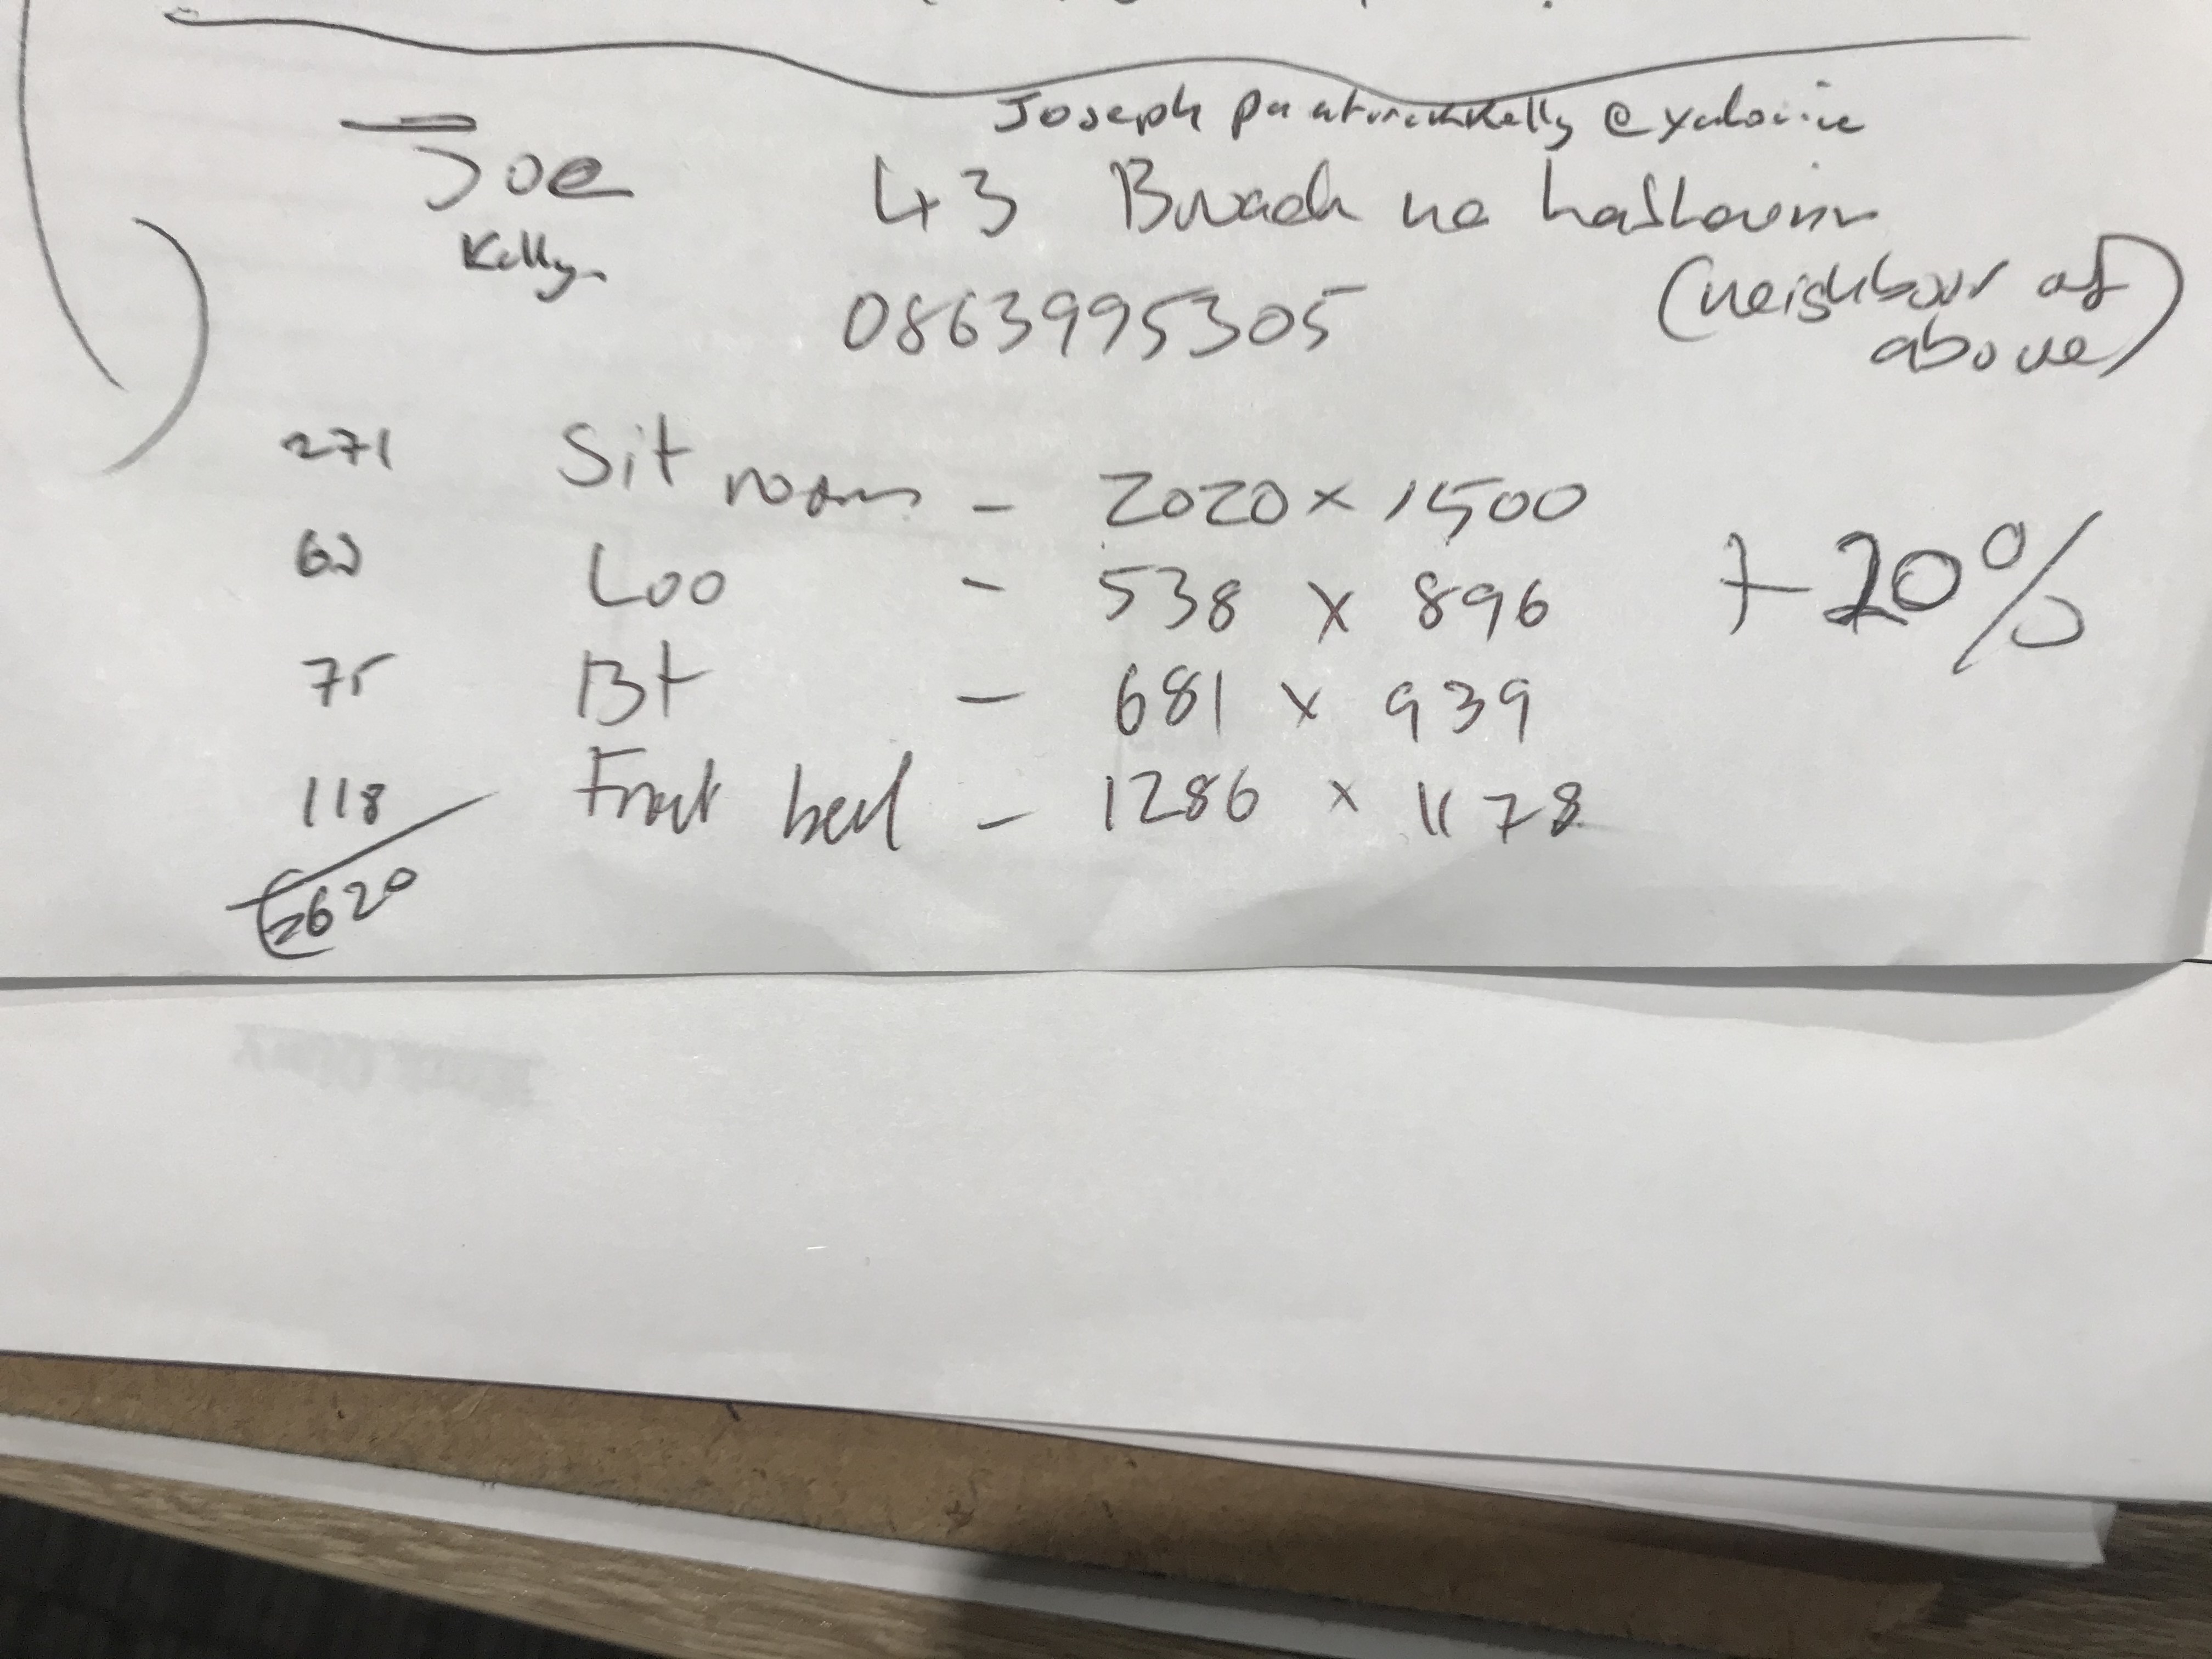 Joseph @yahoo.ie
Joe 43 na
Kelly
0863995305 (neighbour of
above)
271 Sit room - 2020 x 1500
+20%
Loo - 538 x 896
75 Bt - 681 x 939
118 Front bed - 1286 x 1178
€620